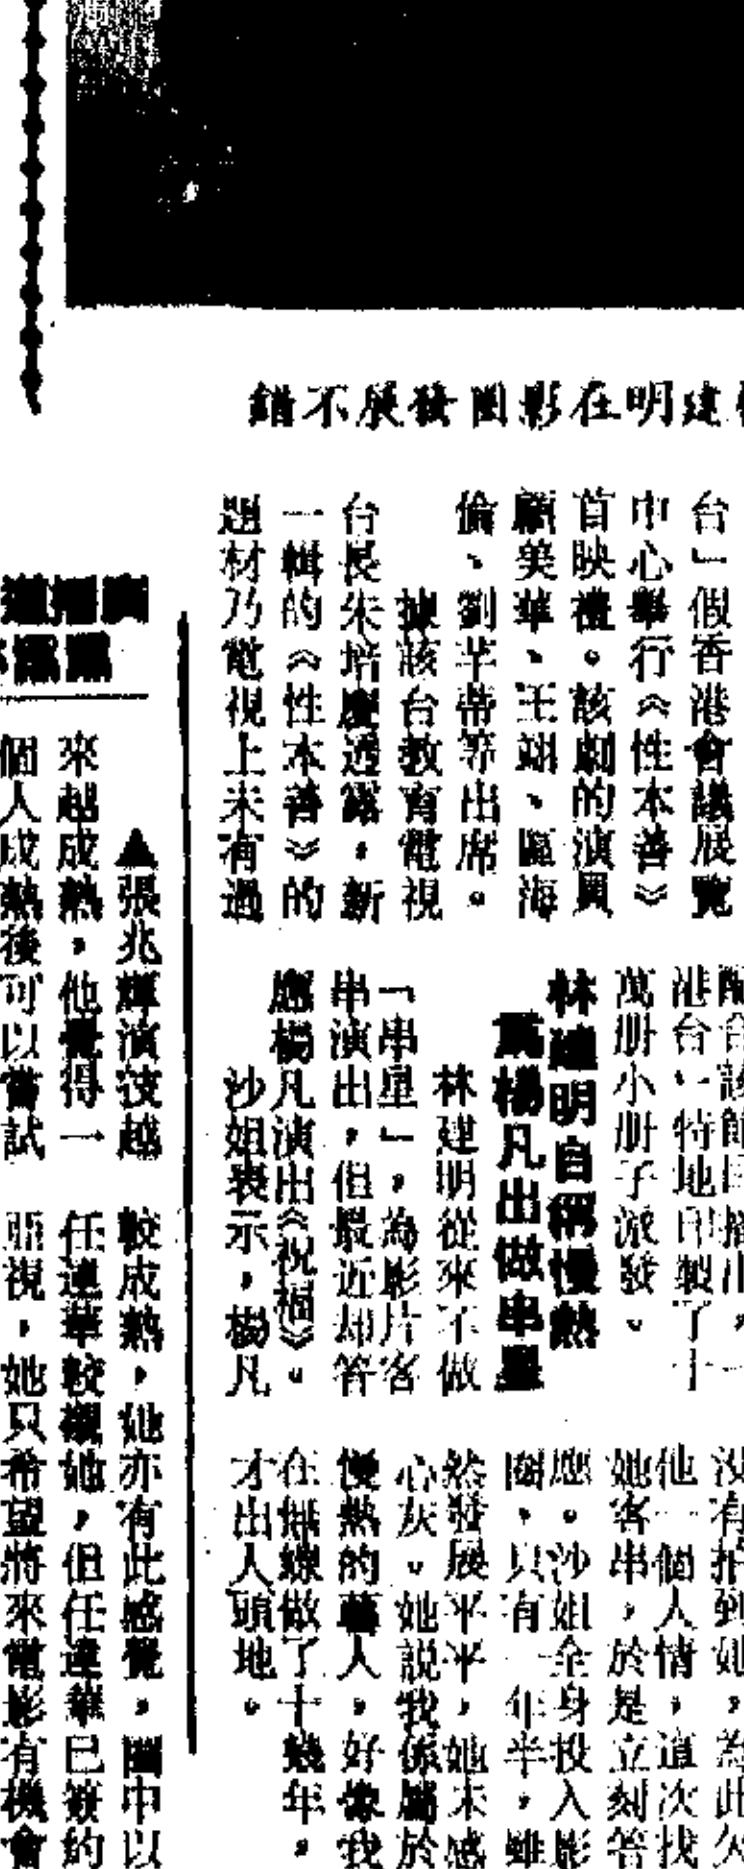 建明在影圈發展不錯
台」假香港會議展覽
中心舉行《性本善》
首映禮。該劇的演員
顧美華、王翊、區海
倫、劉芊蒂等出席。
據該台教育電視
台長朱培慶透露,新
一輯的《性本善》的
題材乃電視上未有過
港台特地印製了十
萬册小册子派發。
林建明自稱慢熱
為楊凡出做串星
林建明從來不做
「串星」,為影片客
串演出,但最近却答
應楊凡演出《祝福》。
沙姐表示,楊凡
沒有找到她,為此欠
他一個人情,這次找
她客串,於是立刻答
應。沙姐全身投入影
圈,只有一年半,雖
然發展平平,她未感
心灰。她說我係屬於
慢熱的藝人,好像我
在無線做了十幾年,
才出人頭地。
▲張兆輝演技越
來越成熟,他覺得一
個人成熟後可以嘗試
較成熟,她亦有此感覺,圈中以
任達華較襯她,但任達華已簽約
亞視,她只希望將來電影有機會